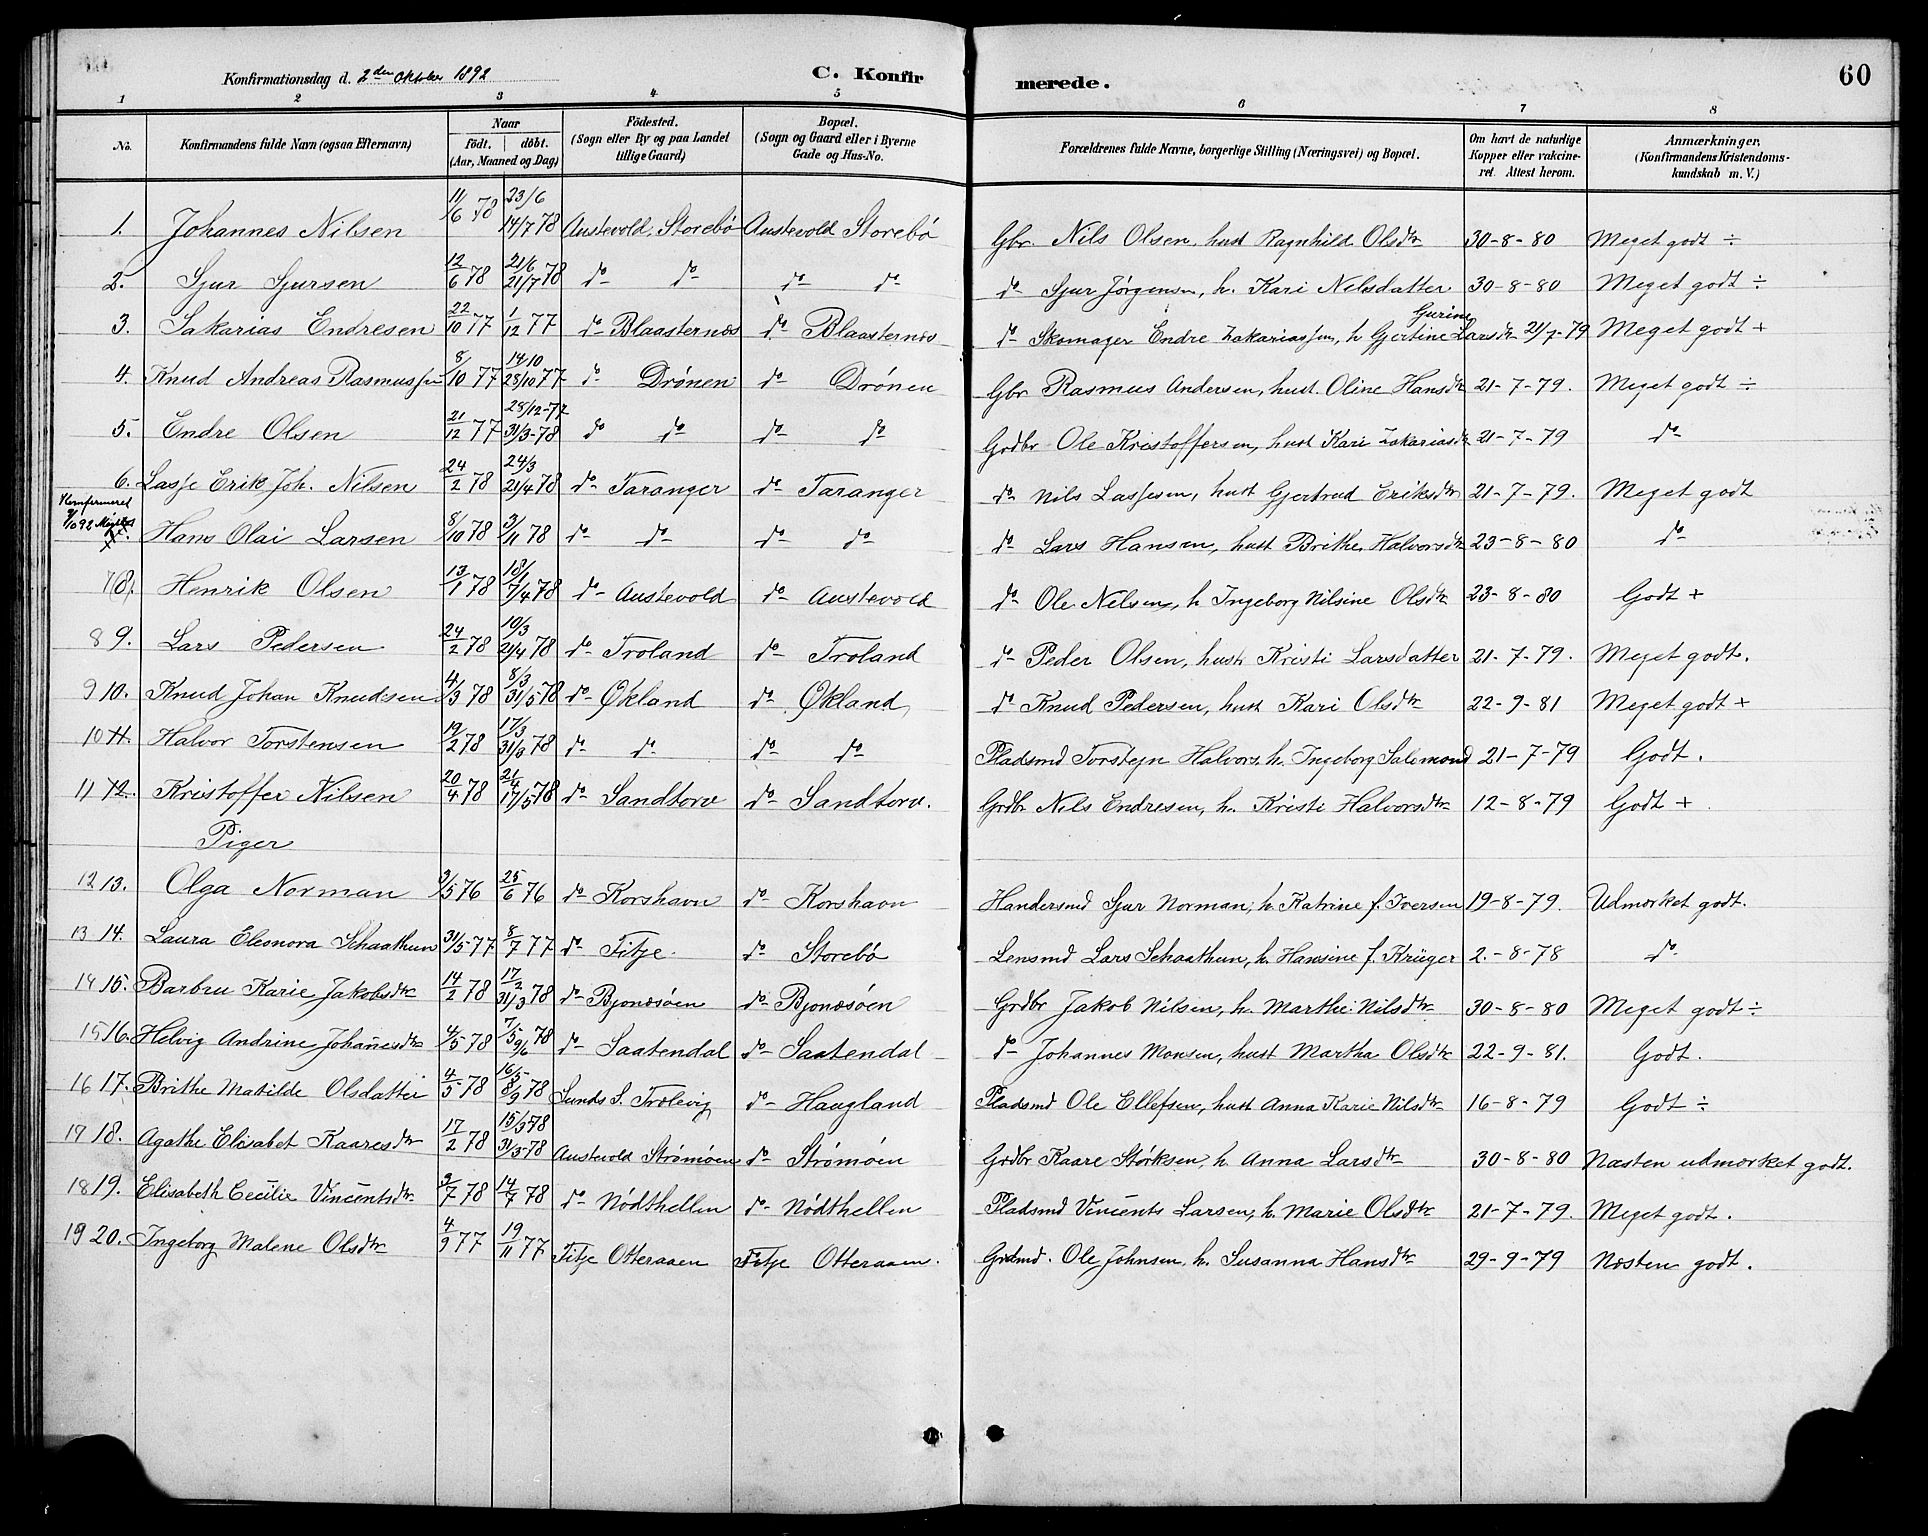 Konfirmationsdag d. 2den Oktober 1892 C. Konfir merede. 60
1 2 3 4 5 6 7 8
No. Konfirmandens fulde Navn (ogsaa Efternavn) Naar födt. döbt. (Aar, Maaned og Dag) Födested. (Sogn eller By og paa Landet tillige Gaard) Bopæl. (Sogn og Gaard eller i Byerne Gade og Hus-No. Forældrenes fulde Navne, borgerlige Stilling (Næringsvei) og Bopæl. Om havt de naturlige Kopper eller vakcineret. Attest herom. Anmærkninger. (Konfirmandens Kristendomskundskab m. V.)
1. Johannes Nilsen 11/6 78 23/6 14/7 78 Austevold Storebø Austevold Storebø Gbr. Nils Olsen, hust Ragnhild Olsdtr 30-8-80 Meget godt ÷
2. Sjur Sjursen 12/6 78 21/6 21/7 78 do do do do do Sjur Jørgensen, h. Kari Nelsdatter 30-8-80 Meget godt ÷
3. Sakarias Endresen 22/10 77 1/12 77 do Blaasternæs do Blaasternæs do Skomager Endre Zakariassen, h Gjertine Gurine Larsdtr 21/7-79 Meget godt +
4. Knud Andreas Rasmussen 8/10 77 14/10 28/10 77 do Drønen do Drønen Gbr Rasmus Andersen, hust. Oline Hansdtr 21-7-79. Meget godt ÷
5. Endre Olsen 21/12 77 28/12-77 31/3-78 do do do do Grdbr Ole Kristoffersen, hust Kari Zakariasdtr 21-7-79 do
6. Lasse Erik Joh. Nilsen 24/2 78 24/3 21/4 78 do Taranger do Taranger do Nils Lassesen, hust Gjertrud Eriksdtr 21-7-79. Meget godt
Konfirmeret 9/10 92
Hans Olai Larsen 8/10 78 3/11 78 do do do do do Lars Hansen, hust Brithe Halvorsdtr 23-8-80 do
7 8. Henrik Olsen 13/1 78 18/1 7/4 78 do Austevold do Austevold do Ole Nelsen, h Ingeborg Nilsine Olsdtr 23-8-80 Godt +
8 9. Lars Pedersen 24/2 78 10/3 21/4 78 do Troland do Troland do Peder Olsen, hust Kristi Larsdatter 21-7-79. Meget godt.
9 10. Knud Johan Knudsen 4/3 78 8/3 31/5 78 do Økland do Økland do Knud Pedersen, hust Kari Olsdtr 22-9-81 Meget godt +
10 11. Halvor Torstensen 19/2 78 17/3 31/3 78 do do do do Pladsmd Torstejn Halvors. h. Ingeborg Salemond 21-7-79 Godt.
11 12. Kristoffer Nilsen 20/4 78 21/4 17/5 78 do Sandtorv do Sandtorv. Grdbr Nils Endresen, h. Kristi Halvorsdtr 12-8-79 Godt +
Piger
12 13. Olga Norman 3/5 76 25/6 76 do Korshavn do Korshavn Handersmd Sjur Norman, h. Katrine f. Iversen 19-8-79. Udmærket godt.
13 14. Laura Eleonora Schaathun 31/5 77 8/7 77 do Fitje do Storebø Lensmd Lars Schaathun, h. Hansine f. Krüger 2.-8-78 do
14 15. Barbru Karie Jakobsdtr 14/2 78 17/2 31/3 78 do Bjonæsøen do Bjonæsøen Grdbr Jakob Nilsen, h. Marthe Nilsdtr 30-8-80 Meget godt ÷
15 16. Helvig Andrine Johannesdtr 4/5 78 7/5 9/6 78 do Saatendal do Saatendal do Johannes Monsen, hust Martha Olsdtr 22-9-81. Godt.
16 17. Brithe Matilde Olsdatter 4/5 78 16/5 8/9 78 Sunds S. Trolevig do Haugland Pladsmd Ole Ellefsen, hust Anna Karie Nilsdtr 16-8-79 Godt ÷
17 18. Agathe Elisabet Kaaresdtr 17/2 78 15/3 78 31/3-78 Austevold Strømøen do Strømøen Grdbr Kaare Størksen, h. Anna Larsdtr 30-8-80 Næsten udmærket godt.
18 19. Elisabeth Cecilie Vincentsdtr 3/7 78 14/7 78 do Nødthellen do Nødthellen Pladsmd Vincents Larsen, h. Marie Olsdtr 21-7-79. Meget godt.
19 20. Ingeborg Malene Olsdtr 4/9 77 19/11 77 Fitje Otteraaen Fitje Otteraaen. Grdmd. Ole Johnsen, h. Susanna Hansdtr 29-9-79 Næsten godt.